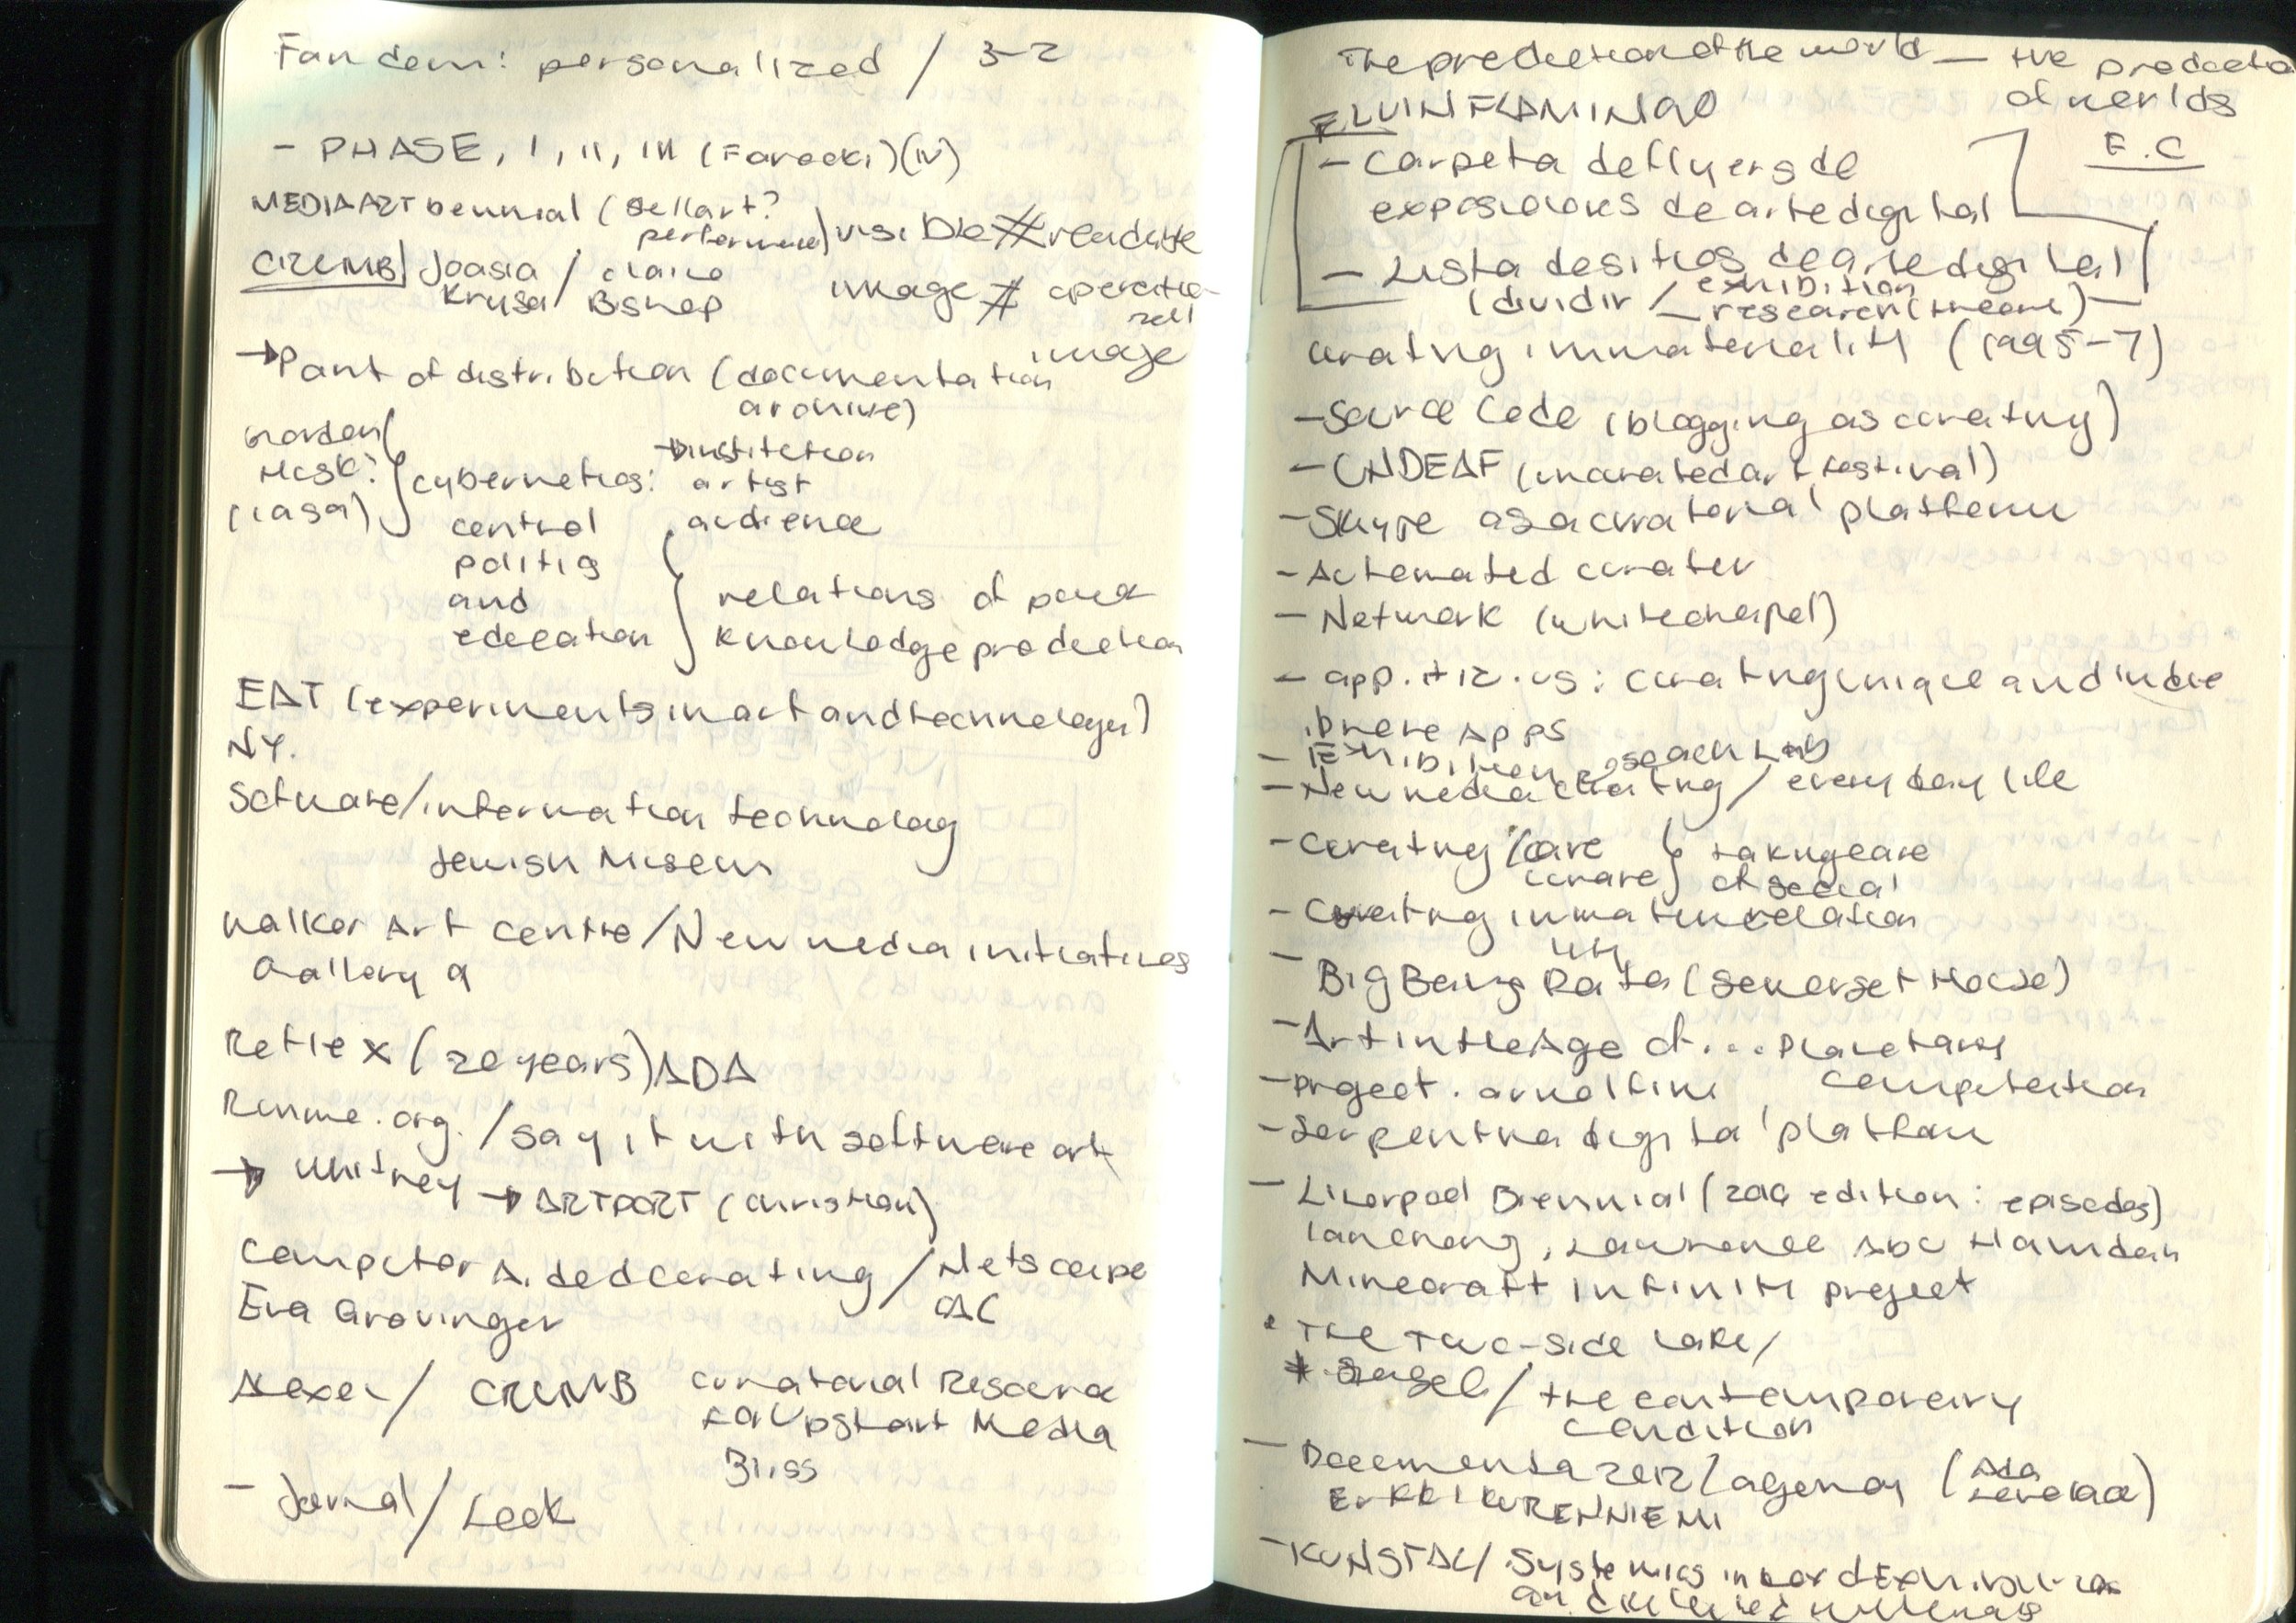 Fandom: personalized / 3-2
- PHASE, I, II, III (Farocki) (IV)
MEDIA ART biennial ( sell art?
performance) visible ≠ readable
CRUMB / Joasia / Claire
Krysa / Bishop
image ≠ operatio-
nal
image
→ Point of distribution (documentation
archive)
Gordon
Pask?
(1969)
cybernetics:
control
politics
and
education
→ institution
artist
audience
relations of power
knowledge production
EAT (experiments in art and technology)
NY.
Software/information technology
Jewish Museum
Walker Art Centre / New media initiatives
Gallery 9
Reflex (20 years) ADA
Runme.org. / say it with software art
→ Whitney → ARTPORT (Christian)
Computer Aided curating / Netscape
CAC
Eva Grovinger
/ CRUMB curatorial Resource
for Upstart Media
Bliss
- Jornal / Leek
The production of the world — the production
of worlds
ELVIN FLAMINGO
- Carpeta de flyers de
exposiciones de arte digital
E.C
- Lista de sitios de arte digital
(dividir / exhibition
research (theory)
curating immateriality (1995-7)
- Source Code (blogging as curating)
- UNDEAF (uncurated art festival)
- Skype as a curatorial platform
- Automated curator
- Network (whitechapel)
- app.itiz.us: curating unique and indie
Apps
- Exhibition research Lab
- New media curating / everyday life
- Curating / care
curare } taking care
of social
relation
- Curating immateriality
- Big Bang Data (Somerset House)
- Art in the Age of... Planetary
computation
- project.arnolfini
- Serpentine digital platform
- Liverpool Biennial (2016 edition: episodes)
Ian Cheng, Lawrence Abu Hamdan
Minecraft Infinity project
• The Two-Side Lake /
/ The contemporary
condition
- Documenta 2012 / agency (Ada
Lovelace)
ERKKI KURENNIEMI
- KUNSTAL / Systemics